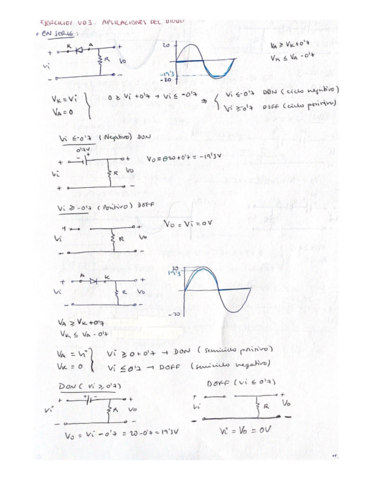 EJERCICIOS UD3. APLICACIONES DEL DIODO
EN SERIE:
+ K A +
Vi R Vo
- -
20
-19'3
-20
VA ≥ VK+0'7
VK ≤ VA-0'7
VK = Vi
VA = 0
0 ≥ Vi+0'7 → Vi ≤ -0'7 ⇒
Vi ≤ -0'7 DON (ciclo negativo)
Vi ≥ -0'7 DOFF (ciclo positivo)
Vi ≤ -0'7 (Negativo) DON
0'7V
+ - + +
Vi R Vo
- -
Vo = -20+0'7 = -19'3V
Vi ≥ -0'7 (Positivo) DOFF
+ +
Vi R Vo
- -
Vo = Vi = 0V
+ A K +
Vi R Vo
- -
20
19'3
-20
VA ≥ VK+0'7
VK ≤ VA-0'7
VA = Vi
VK = 0
Vi ≥ 0+0'7 → DON (semiciclo positivo)
Vi ≤ 0'7 → DOFF (semiciclo negativo)
DON (Vi ≥ 0'7)
DOFF (Vi ≤ 0'7)
+ + - +
Vi R Vo
- -
+ +
Vi R Vo
- -
Vo = Vi - 0'7 = 20-0'7 = 19'3V
Vi = Vo = 0V